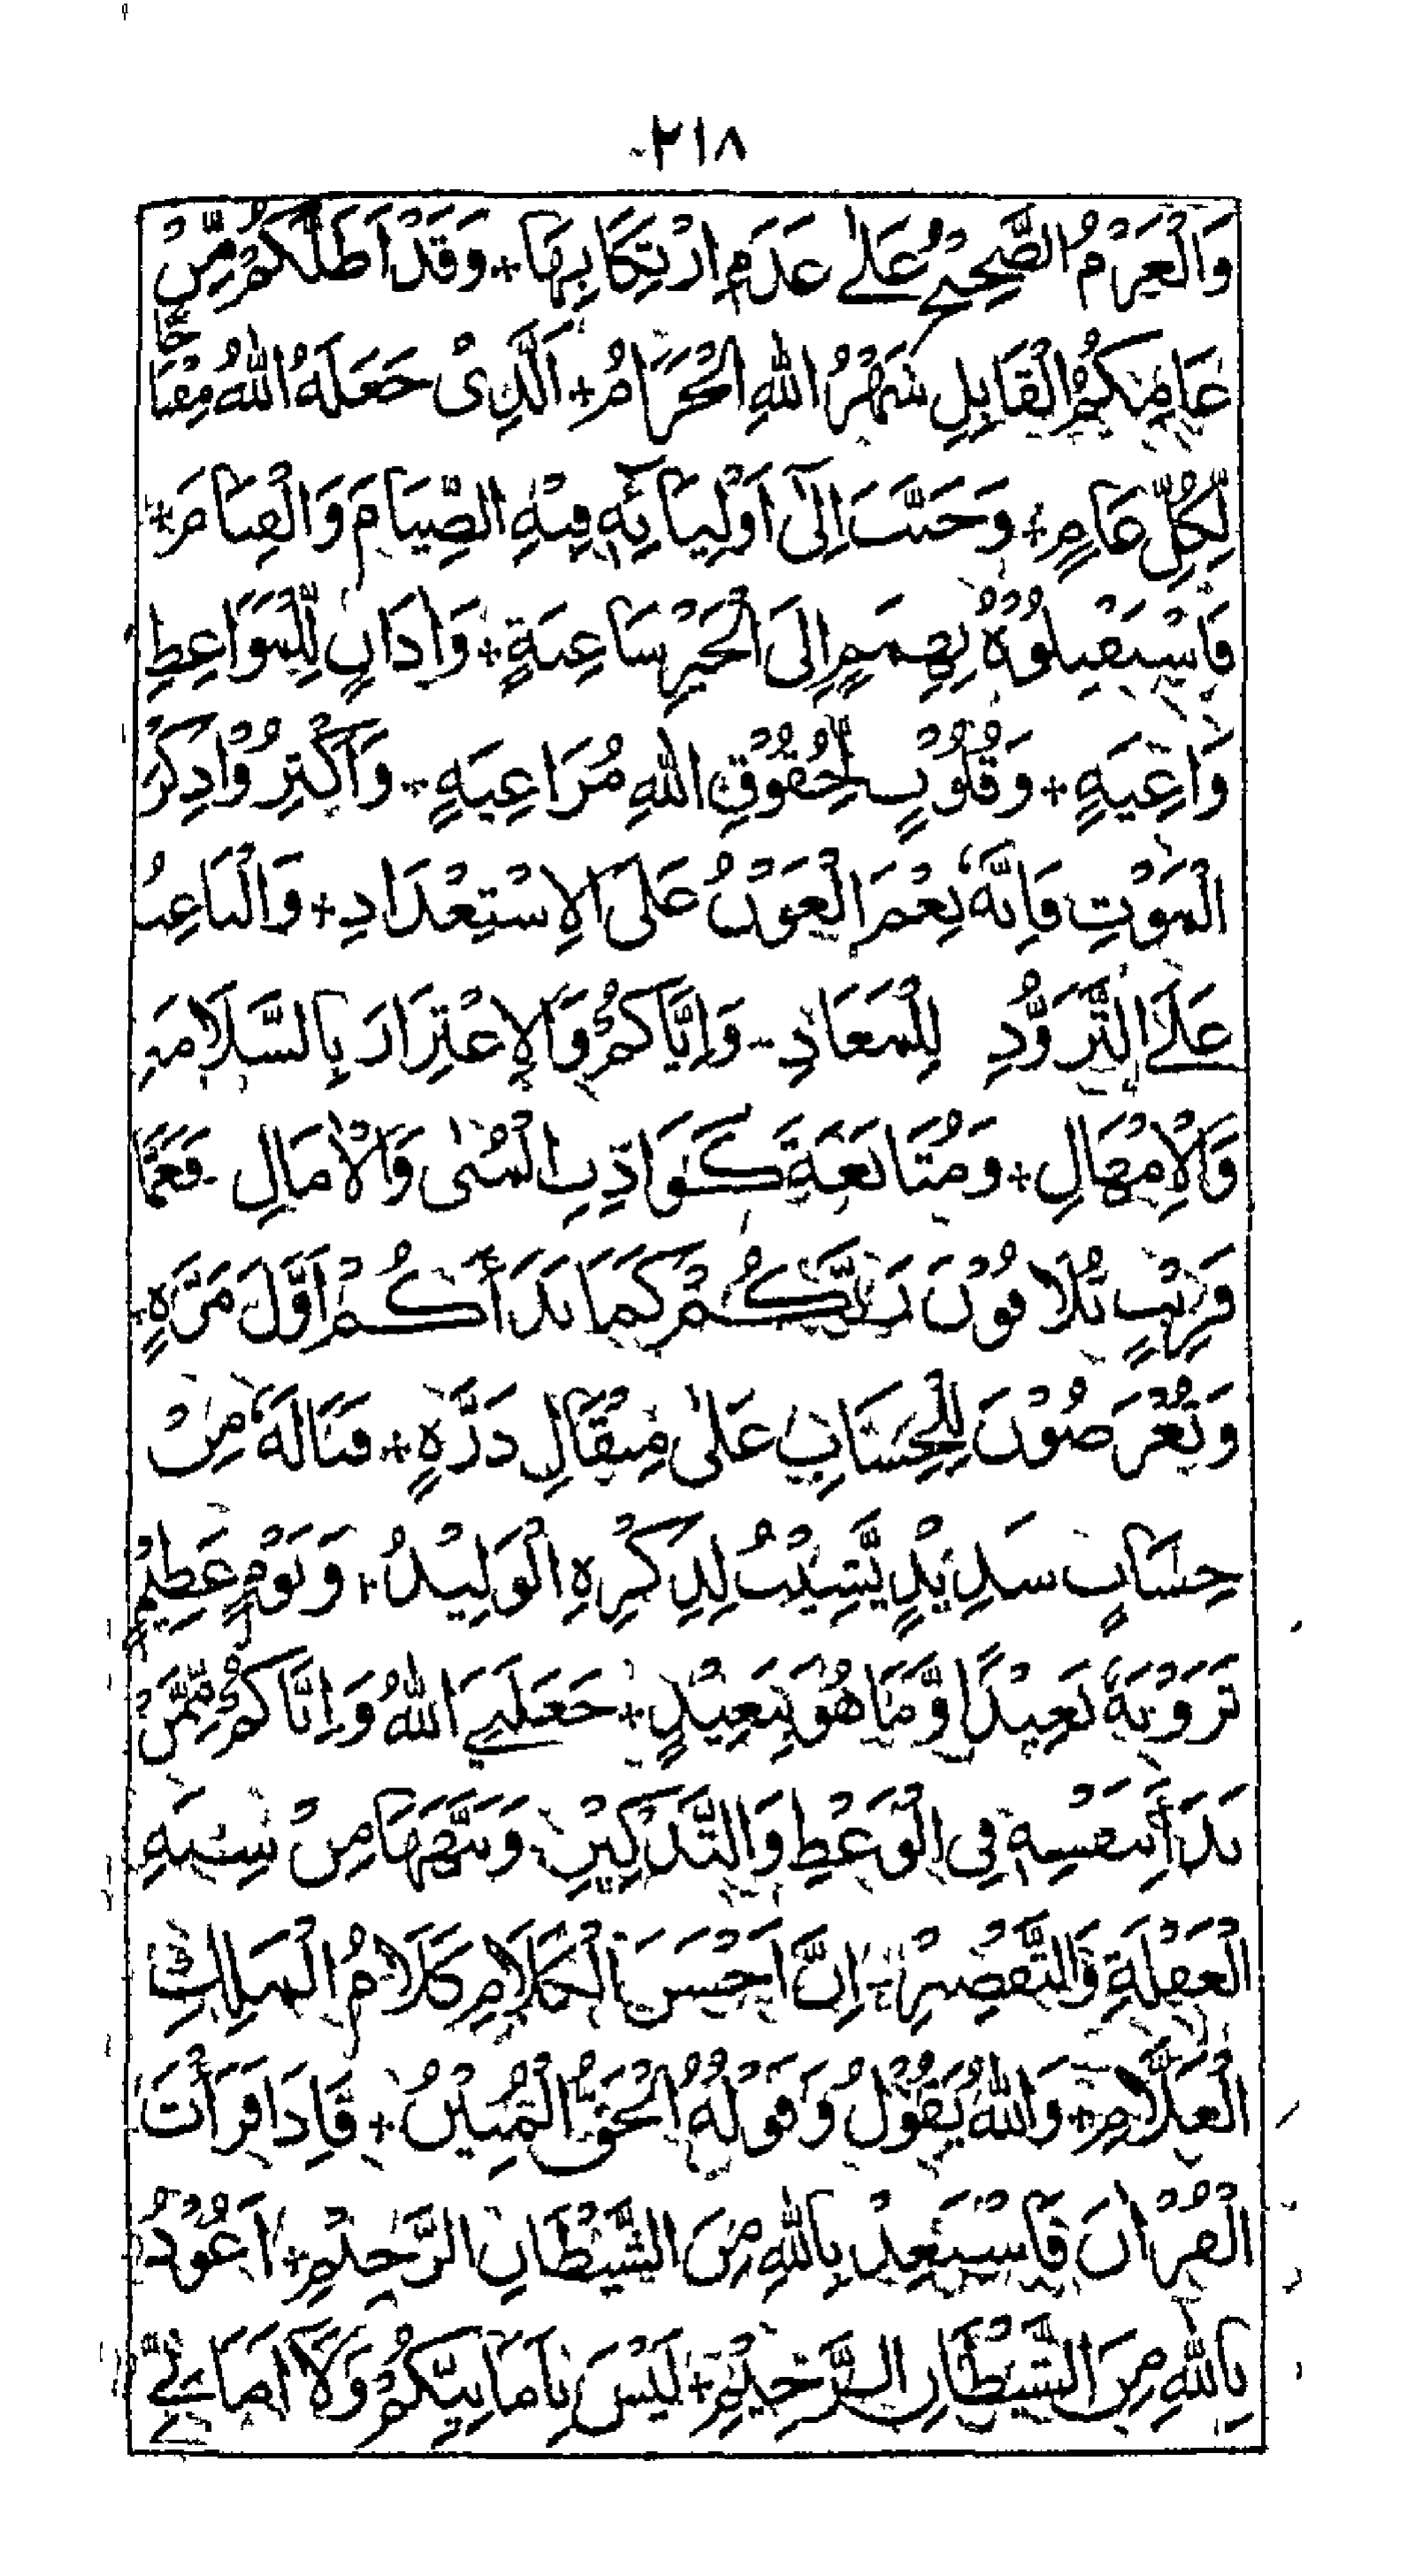 ٢١٨
وَالْعَزْمُ الصَّحِيْحُ عَلٰى عَدَمِ ارْتِكَابِهَا + وَقَدْ اَظَلَّكُمْ مِّنْ
عَامِكُمُ الْقَابِلِ شَهْرُ اللهِ الْحَرَامُ + اَلَّذِىْ جَعَلَهُ اللهُ مِفْتَاحًا
لِّكُلِّ عَامٍ + وَحَبَّبَ اِلٰى اَوْلِيَائِهٖ فِيْهِ الصِّيَامَ وَالْقِيَامَ +
فَاسْتَقْبِلُوْهُ بِهِمَمٍ اِلَى الْخَيْرِ سَاعِيَةٍ + وَاٰذَانٍ لِّلْمَوَاعِظِ
وَاعِيَةٍ + وَقُلُوْبٍ لِحُقُوْقِ اللهِ مُرَاعِيَةٍ - وَاَكْثِرُوْا ذِكْرَ
الْمَوْتِ فَاِنَّهٗ نِعْمَ الْعَوْنُ عَلَى الْاِسْتِعْدَادِ + وَالْبَاعِثُ
عَلَى التَّزَوُّدِ لِلْمَعَادِ - وَاِيَّاكُمْ وَالْاِغْتِرَارَ بِالسَّلَامَةِ
وَالْاِمْهَالِ + وَمُتَابَعَةَ كَوَاذِبِ الْمُنٰى وَالْاٰمَالِ - فَعَمَّا
قَرِيْبٍ تُلَاقُوْنَ رَبَّكُمْ كَمَا بَدَأَكُمْ اَوَّلَ مَرَّةٍ +
وَتُعْرَضُوْنَ لِلْحِسَابِ عَلٰى مِثْقَالِ ذَرَّةٍ + فَيَالَهٗ مِنْ
حِسَابٍ شَدِيْدٍ يَّشِيْبُ لِذِكْرِهِ الْوَلِيْدُ + وَيَوْمٍ عَظِيْمٍ
تَرَوْنَهٗ بَعِيْدًا وَّمَا هُوَ بِبَعِيْدٍ + جَعَلَنِيَ اللهُ وَاِيَّاكُمْ مِّمَّنْ
بَدَأَ بِنَفْسِهٖ فِى الْوَعْظِ وَالتَّذْكِيْرِ + وَنَبَّهَهَا مِنْ سِنَةِ
الْغَفْلَةِ وَالتَّقْصِيْرِ - اِنَّ اَحْسَنَ الْكَلَامِ كَلَامُ الْمَلِكِ
الْعَلَّامِ + وَاللهُ يَقُوْلُ وَقَوْلُهُ الْحَقُّ الْمُبِيْنُ + فَاِذَا قَرَأْتَ
الْقُرْاٰنَ فَاسْتَعِذْ بِاللهِ مِنَ الشَّيْطَانِ الرَّجِيْمِ + اَعُوْذُ
بِاللهِ مِنَ الشَّيْطَانِ الرَّجِيْمِ + لَيْسَ بِاَمَانِيِّكُمْ وَلَا اَمَانِيِّ